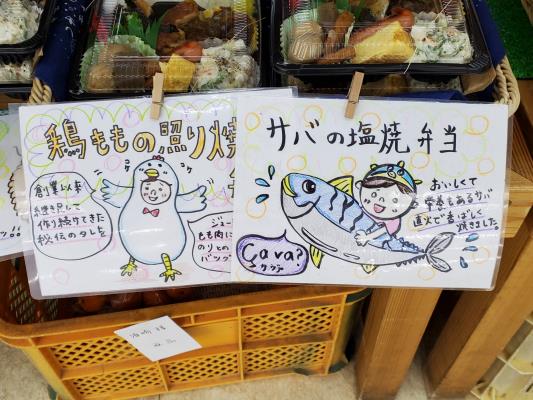 鶏ももの照り焼
コケ
コケ
創業以来
継ぎ足して
作り続けてきた
秘伝のタレを
ジュー
もも肉に
のりとの
バツグ
サバの塩焼弁当
おいしくて
栄養もあるサバ
直火で香ばしく
焼きました。
Çava?
サヴァ